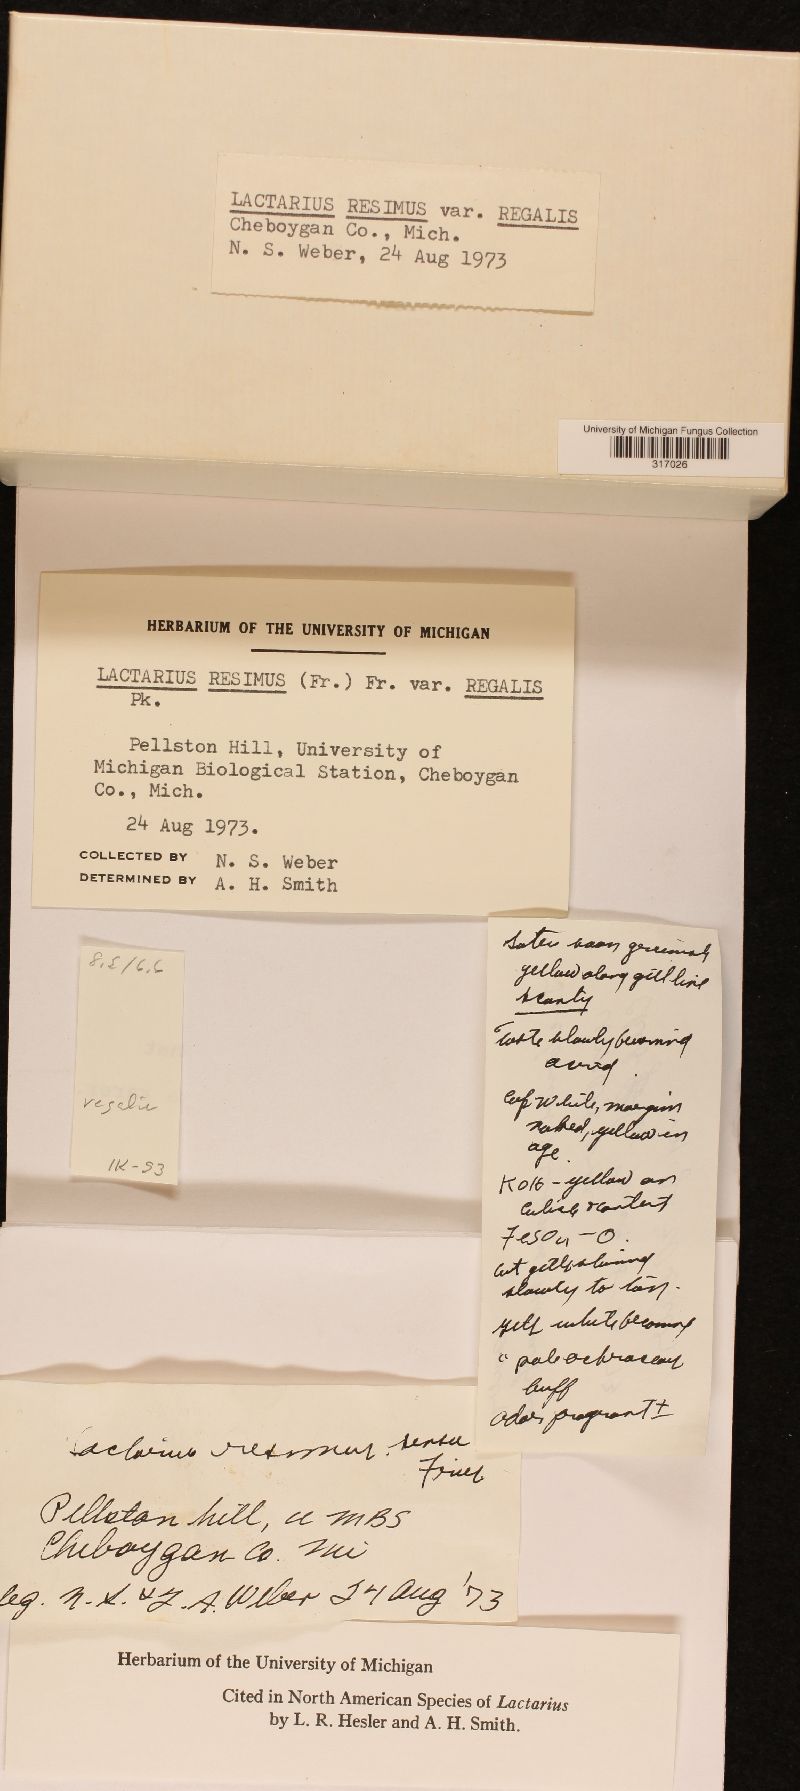 LACTARIUS RESIMUS var. REGALIS
Cheboygan Co., Mich.
N. S. Weber, 24 Aug 1973
University of Michigan Fungus Collection
317026
HERBARIUM OF THE UNIVERSITY OF MICHIGAN
LACTARIUS RESIMUS (Fr.) Fr. var. REGALIS
Pk.
Pellston Hill, University of
Michigan Biological Station, Cheboygan
Co., Mich.
24 Aug 1973.
COLLECTED BY N. S. Weber
DETERMINED BY A. H. Smith
regalis
soon
yellow along gill line
scanty
Taste slowly becoming
acrid.
Cap white, margin
naked, yellow in
age.
KOH - yellow on
cuticle & context
FeSO4 - O.
cut gills staining
slowly to tan.
gills white becoming
"pale ochraceous
buff
odor fragrant ±
Lactarius resimus sensu
Fries
Pellston hill, UMBS
Cheboygan Co. Mi
leg. N.S. & J.A. Weber 24 Aug '73
Herbarium of the University of Michigan
Cited in North American Species of Lactarius
by L. R. Hesler and A. H. Smith.